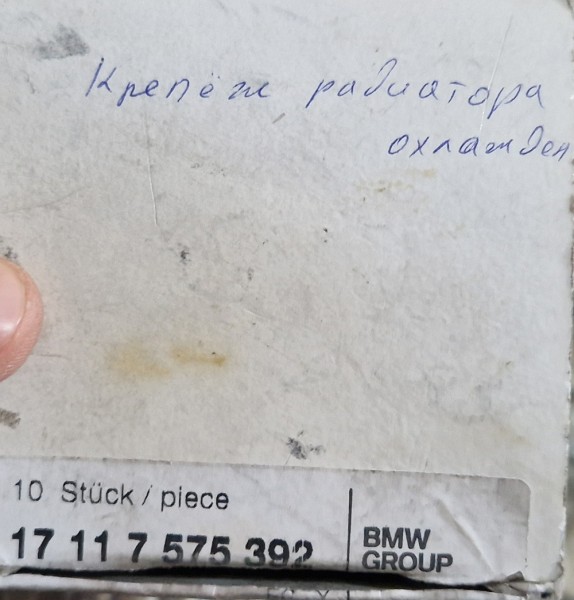 Крепёж радиатора
охлажден
10 Stück / piece
17 11 7 575 392
BMW
GROUP